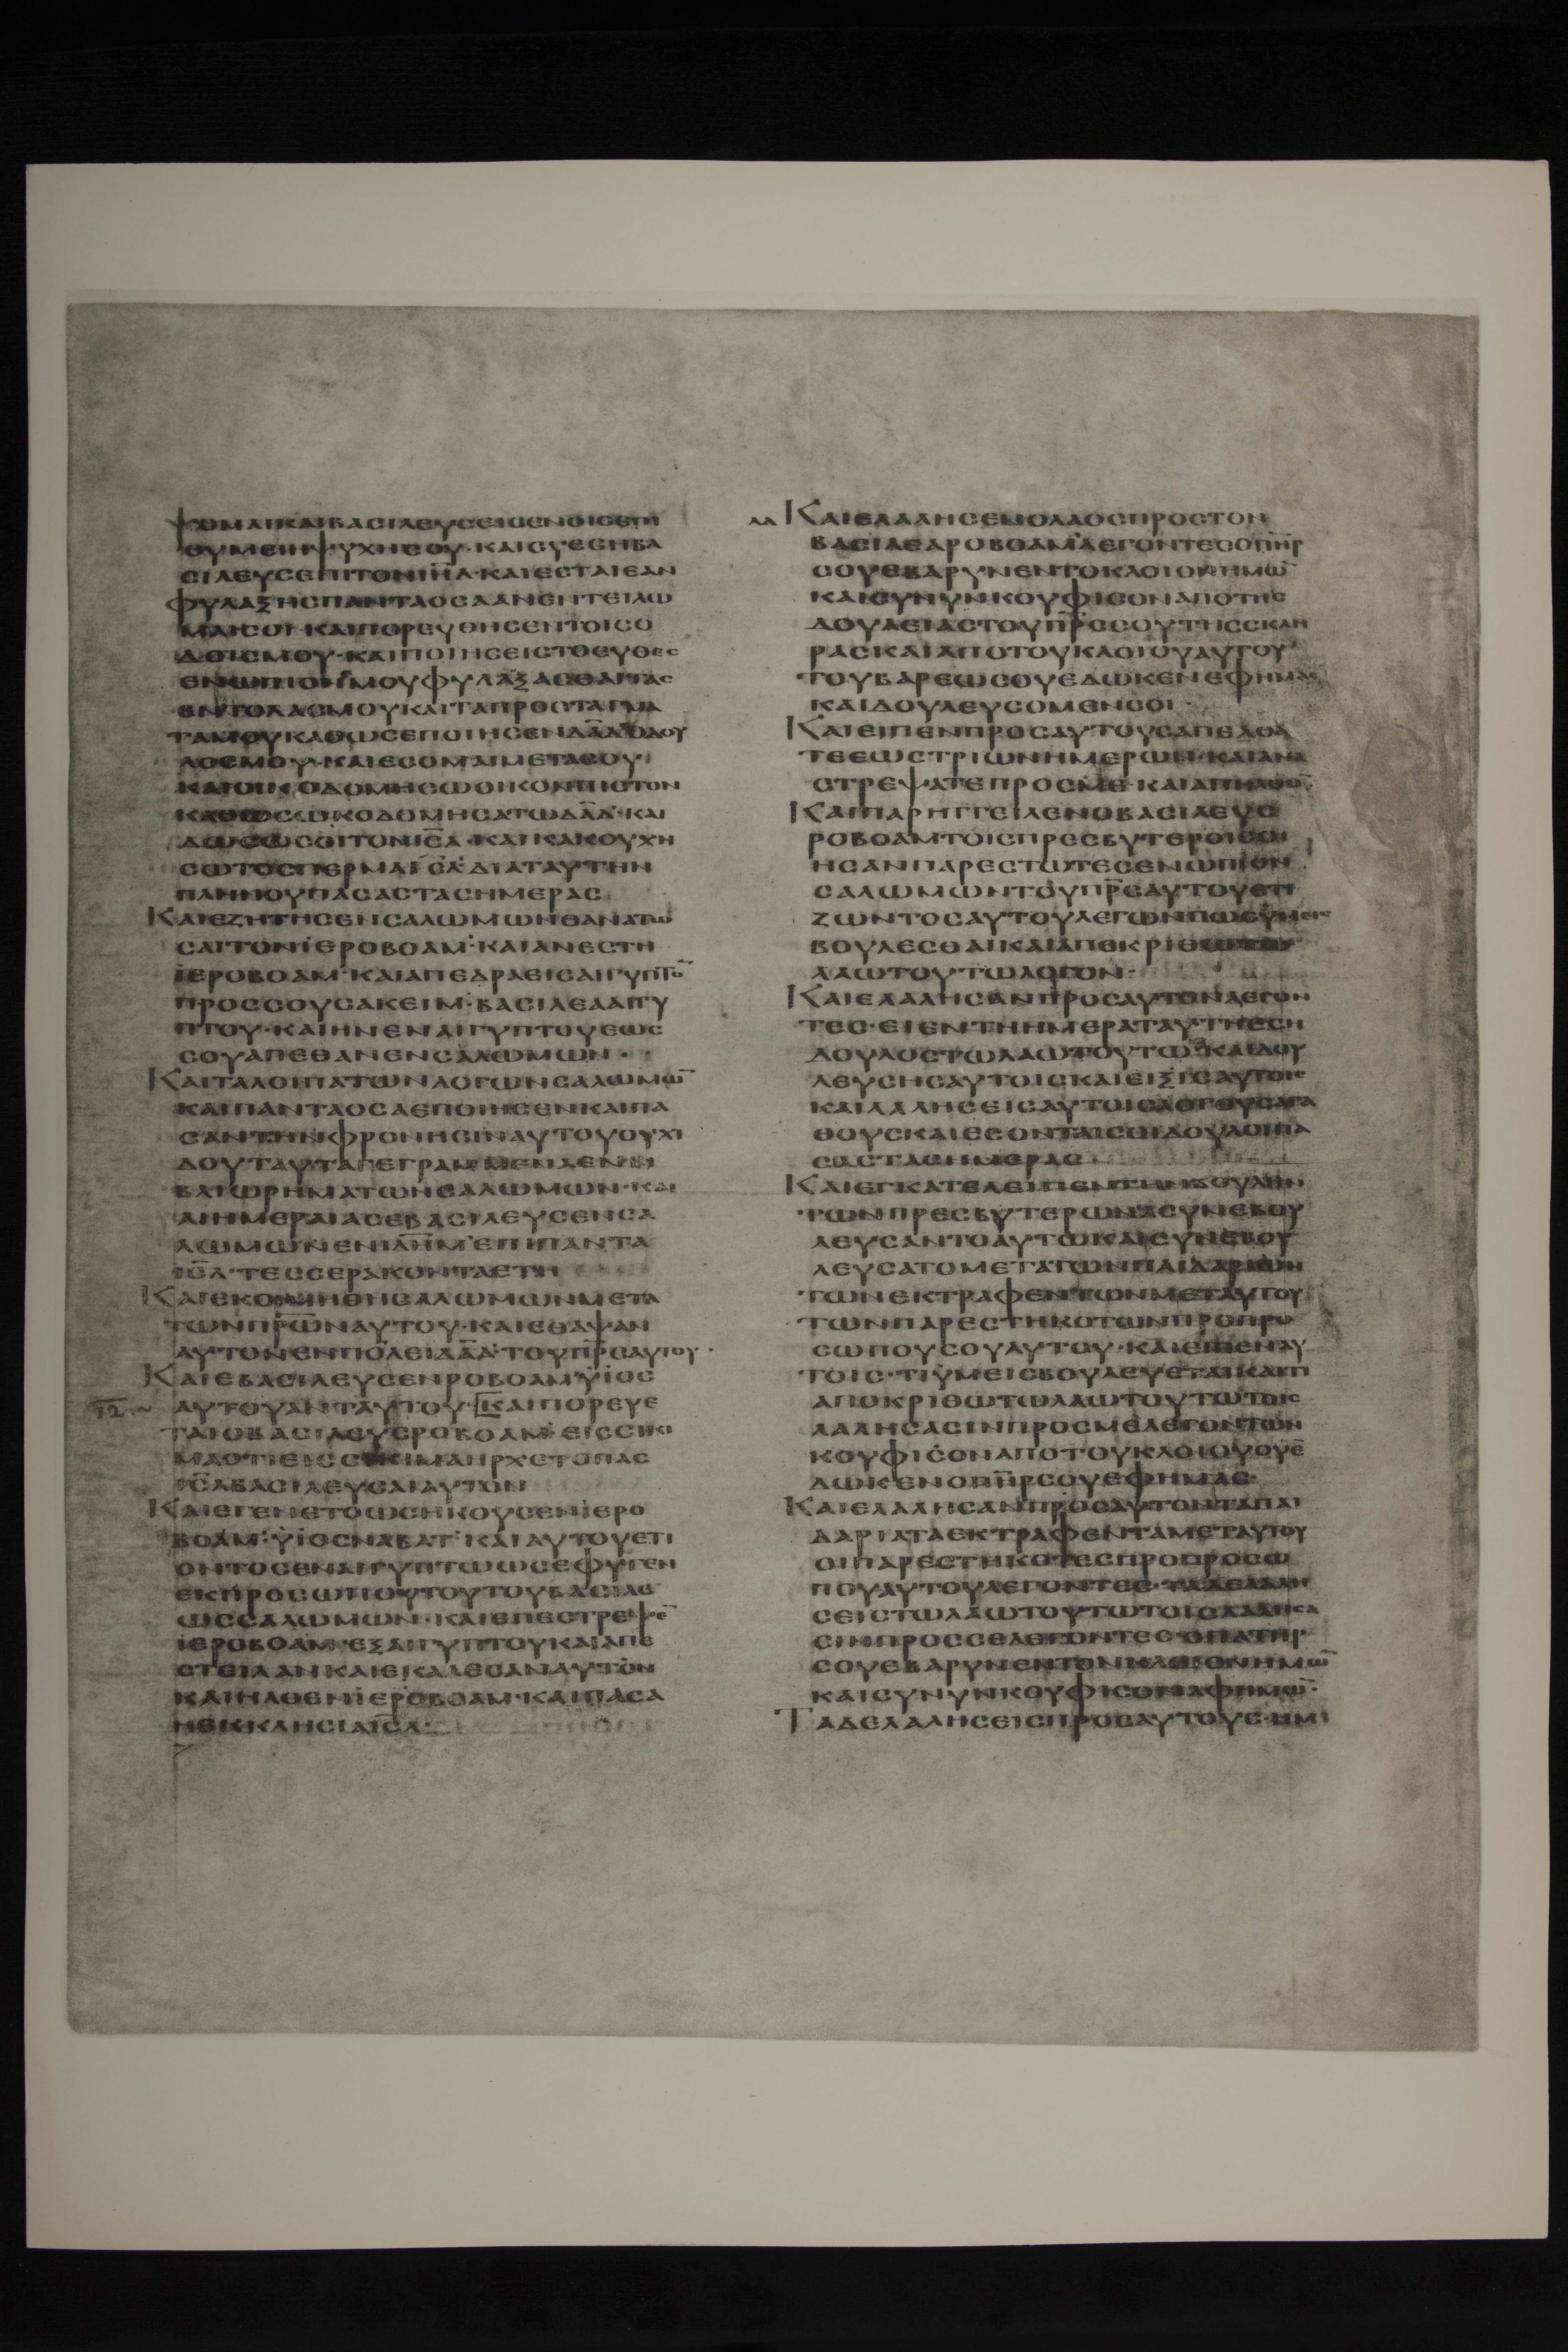 ΨΟΜΑΙΚΑΙΒΑCΙΛΕΥCΕΙCΕΝΟΙCΕΠΙ
ΘΥΜΕΙΗΨΥΧΗCΟΥ·ΚΑΙCΥΕCΗΒΑ
CΙΛΕΥCΕΠΙΤΟΝΙΗΛ·ΚΑΙΕCΤΑΙΕΑΝ
ΦΥΛΑΞΗCΠΑΝΤΑΟCΑΑΝΕΝΤΕΙΛΩ
ΜΑΙCΟΙ·ΚΑΙΠΟΡΕΥΘΗCΕΝΤΟΙCΟ
ΔΟΙCΜΟΥ·ΚΑΙΠΟΙΗCΕΙCΤΟΕΥΘΕC
ΕΝΩΠΙΟΝΜΟΥΦΥΛΑΞΑCΘΑΙΤΑC
ΕΝΤΟΛΑCΜΟΥΚΑΙΤΑΠΡΟCΤΑΓΜΑ
ΤΑΜΟΥΚΑΘΩCΕΠΟΙΗCΕΝΔΑΔΟΔΟΥ
ΛΟCΜΟΥ·ΚΑΙΕCΟΜΑΙΜΕΤΑCΟΥ
ΚΑΙΟΙΚΟΔΟΜΗCΩΟΙΚΟΝΠΙCΤΟΝ
ΚΑΘΩCΩΚΟΔΟΜΗCΑΤΩΔΑΔ·ΚΑΙ
ΔΩCΩCΟΙΤΟΝΙCΛ·ΚΑΙΚΑΚΟΥΧΗ
CΩΤΟCΠΕΡΜΑΔΑΔ·ΔΙΑΤΑΥΤΗΝ
ΠΛΗΝΟΥΠΑCΑCΤΑCΗΜΕΡΑC
ΚΑΙΕΖΗΤΗCΕΝCΑΛΩΜΩΝΘΑΝΑΤΩ
CΑΙΤΟΝΙΕΡΟΒΟΑΜ·ΚΑΙΑΝΕCΤΗ
ΙΕΡΟΒΟΑΜ·ΚΑΙΑΠΕΔΡΑΕΙCΑΙΓΥΠΤΟ̅
ΠΡΟCCΟΥCΑΚΕΙΜ·ΒΑCΙΛΕΑΑΙΓΥ
ΠΤΟΥ·ΚΑΙΗΝΕΝΑΙΓΥΠΤΟΥΕΩC
CΟΥΑΠΕΘΑΝΕΝCΑΛΩΜΩΝ·
ΚΑΙΤΑΛΟΙΠΑΤΩΝΛΟΓΩΝCΑΛΩΜΩ̅
ΚΑΙΠΑΝΤΑΟCΑΕΠΟΙΗCΕΝΚΑΙΠΑ
CΑΝΤΗΝΦΡΟΝΗCΙΝΑΥΤΟΥΟΥΧΙ
ΔΟΥΤΑΥΤΑΓΕΓΡΑΜΜΕΝΑΕΝΒΙ
ΒΛΙΩΡΗΜΑΤΩΝCΑΛΩΜΩΝ·ΚΑΙ
ΑΙΗΜΕΡΑΙΑCΕΒΑCΙΛΕΥCΕΝCΑ
ΛΩΜΩΝΕΝΙΛΗΜ·ΕΠΙΠΑΝΤΑ
ΙCΛ·ΤΕCCΕΡΑΚΟΝΤΑΕΤΗ
ΚΑΙΕΚΟΙΜΗΘΗCΑΛΩΜΩΝΜΕΤΑ
ΤΩΝΠΡ̅Ω̅ΝΑΥΤΟΥ·ΚΑΙΕΘΑΨΑΝ
ΑΥΤΟΝΕΝΠΟΛΕΙΔΑΔ·ΤΟΥΠΡCΑΥΤΟΥ·
ΚΑΙΕΒΑCΙΛΕΥCΕΝΡΟΒΟΑΜΥΙΟC
ΑΥΤΟΥΑΝΤΑΥΤΟΥ·ΚΑΙΠΟΡΕΥΕ
ΤΑΙΟΒΑCΙΛΕΥCΡΟΒΟΑΜ·ΕΙCCΙΚΙ
ΜΑΟΤΙΕΙCCΙΚΙΜΑΗΡΧΕΤΟΠΑC
ΙCΛΒΑCΙΛΕΥCΑΙΑΥΤΟΝ
ΚΑΙΕΓΕΝΕΤΟΩCΗΚΟΥCΕΝΙΕΡΟ
ΒΟΑΜ·ΥΙΟCΝΑΒΑΤ·ΚΑΙΑΥΤΟΥΕΤΙ
ΟΝΤΟCΕΝΑΙΓΥΠΤΩΩCΕΦΥΓΕΝ
ΕΚΠΡΟCΩΠΟΥΤΟΥΤΟΥΒΑCΙΛΕ
ΩCCΑΛΩΜΩΝ·ΚΑΙΕΠΕCΤΡΕΨΕ̅
ΙΕΡΟΒΟΑΜ·ΕΞΑΙΓΥΠΤΟΥΚΑΙΑΠΕ
CΤΕΙΛΑΝΚΑΙΕΚΑΛΕCΑΝΑΥΤΟΝ
ΚΑΙΗΛΘΕΝΙΕΡΟΒΟΑΜ·ΚΑΙΠΑCΑ
ΗΕΚΚΛΗCΙΑΙCΛ·
ΛΑ ΚΑΙΕΛΑΛΗCΕΝΟΛΑΟCΠΡΟCΤΟΝ
ΒΑCΙΛΕΑΡΟΒΟΑΜΛΕΓΟΝΤΕCΟΠΗΡ
CΟΥΕΒΑΡΥΝΕΝΤΟΚΛΟΙΟΝΗΜΩ̅
ΚΑΙCΥΝΥΝΚΟΥΦΙCΟΝΑΠΟΤΗC
ΔΟΥΛΕΙΑCΤΟΥΠΡCCΟΥΤΗCCΚΛΗ
ΡΑCΚΑΙΑΠΟΤΟΥΚΛΟΙΟΥΑΥΤΟΥ
ΤΟΥΒΑΡΕΩCΟΥΕΔΩΚΕΝΕΦΗΜΑC
ΚΑΙΔΟΥΛΕΥCΟΜΕΝCΟΙ
ΚΑΙΕΙΠΕΝΠΡΟCΑΥΤΟΥCΑΠΕΛΘΑ
ΤΕΕΩCΤΡΙΩΝΗΜΕΡΩΝ·ΚΑΙΑΝΑ
CΤΡΕΨΑΤΕΠΡΟCΜΕ·ΚΑΙΑΠΗΛΘΟ̅
ΚΑΙΠΑΡΗΓΓΕΙΛΕΝΟΒΑCΙΛΕΥC
ΡΟΒΟΑΜΤΟΙCΠΡΕCΒΥΤΕΡΟΙCΟΙ
ΗCΑΝΠΑΡΕCΤΩΤΕCΕΝΩΠΙΟΝ
CΑΛΩΜΩΝΤΟΥΠΡCΑΥΤΟΥΕΤΙ
ΖΩΝΤΟCΑΥΤΟΥΛΕΓΩΝΠΩCΥΜΕΙC
ΒΟΥΛΕCΘΑΙΚΑΙΑΠΟΚΡΙΘΩΤΩ
ΛΑΩΤΟΥΤΩΛΟΓΟΝ·
ΚΑΙΕΛΑΛΗCΑΝΠΡΟCΑΥΤΟΝΛΕΓΟΝ
ΤΕC·ΕΙΕΝΤΗΗΜΕΡΑΤΑΥΤΗΕCΗ
ΔΟΥΛΟCΤΩΛΑΩΤΟΥΤΩ·ΚΑΙΔΟΥ
ΛΕΥCΗCΑΥΤΟΙCΚΑΙΕΙΞΙCΑΥΤΟΙC
ΚΑΙΛΑΛΗCΕΙCΑΥΤΟΙCΛΟΓΟΥCΑΓΑ
ΘΟΥCΚΑΙΕCΟΝΤΑΙCΟΙΔΟΥΛΟΙΠΑ
CΑCΤΑCΗΜΕΡΑC
ΚΑΙΕΓΚΑΤΕΛΕΙΠΕΝΤΗΝΒΟΥΛΗΝ
ΤΩΝΠΡΕCΒΥΤΕΡΩΝΑCΥΝΕΒΟΥ
ΛΕΥCΑΝΤΟΑΥΤΩΚΑΙCΥΝΕΒΟΥ
ΛΕΥCΑΤΟΜΕΤΑΤΩΝΠΑΙΔΑΡΙΩΝ
ΤΩΝΕΚΤΡΑΦΕΝΤΩΝΜΕΤΑΥΤΟΥ
ΤΩΝΠΑΡΕCΤΗΚΟΤΩΝΠΡΟΠΡΟ
CΩΠΟΥCΟΥΑΥΤΟΥ·ΚΑΙΕΙΠΕΝΑΥ
ΤΟΙC·ΤΙΥΜΕΙCΒΟΥΛΕΥΕΤΑΙΚΑΙΤΙ
ΑΠΟΚΡΙΘΩΤΩΛΑΩΤΟΥΤΩΤΟΙC
ΛΑΛΗCΑCΙΝΠΡΟCΜΕΛΕΓΟΝΤΩΝ
ΚΟΥΦΙCΟΝΑΠΟΤΟΥΚΛΟΙΟΥΟΥΕ
ΔΩΚΕΝΟΠΗΡCΟΥΕΦΗΜΑC·
ΚΑΙΕΛΑΛΗCΑΝΠΡΟCΑΥΤΟΝΤΑΠΑΙ
ΔΑΡΙΑΤΑΕΚΤΡΑΦΕΝΤΑΜΕΤΑΥΤΟΥ
ΟΙΠΑΡΕCΤΗΚΟΤΕCΠΡΟΠΡΟCΩ
ΠΟΥΑΥΤΟΥΛΕΓΟΝΤΕC·ΤΑΔΕΛΑΛΗ
CΕΙCΤΩΛΑΩΤΟΥΤΩΤΟΙCΛΑΛΗCΑ
CΙΝΠΡΟCCΕΛΕΓΟΝΤΕC·ΟΠΑΤΗΡ
CΟΥΕΒΑΡΥΝΕΝΤΟΝΚΛΟΙΟΝΗΜΩ̅
ΚΑΙCΥΝΥΝΚΟΥΦΙCΟΝΑΦΗΜΩ̅·
ΤΑΔΕΛΑΛΗCΕΙCΠΡΟCΑΥΤΟΥC·ΗΜΙ